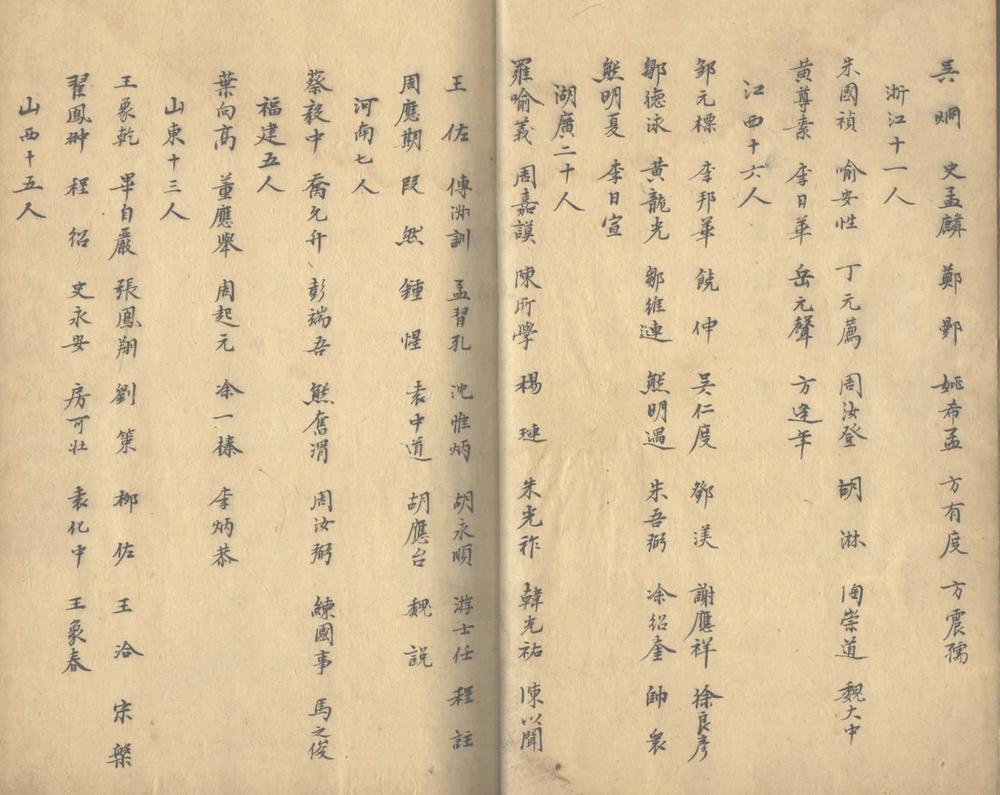 吳炯 史孟麟 鄭鄤 姚希孟 方有度 方震孺
浙江十一人
朱國禎 喻安性 丁元薦 周汝登 胡淋 陶崇道 魏大中
黃尊素 李日華 岳元聲 方逢年
江西十六人
邹元標 李邦華 饒伸 吳仁度 鄧渼 謝應祥 徐良彥
鄒德泳 黃龍光 鄒維璉 熊明遇 朱吾弼 凃紹奎 帥衆
熊明夏 李日宣
湖廣二十人
羅喻義 周嘉謨 陳所學 楊璉 朱光祚 韓光祐 陳以聞
王佐 傅淑訓 孟習孔 沈惟炳 胡永順 游士任 程註
周應期 段然 鍾惺 袁中道 胡應台 魏説
河南七人
蔡毅中 喬允升 彭端吾 熊奮渭 周汝弼 練國事 馬之俊
福建五人
葉向高 董應舉 周起元 凃一榛 李炳恭
山東十三人
王象乾 畢自嚴 張鳳翔 劉策 柳佐 王洽 宋槃
翟鳳翀 程紹 史永安 房可壮 袁化中 王象春
山西十五人